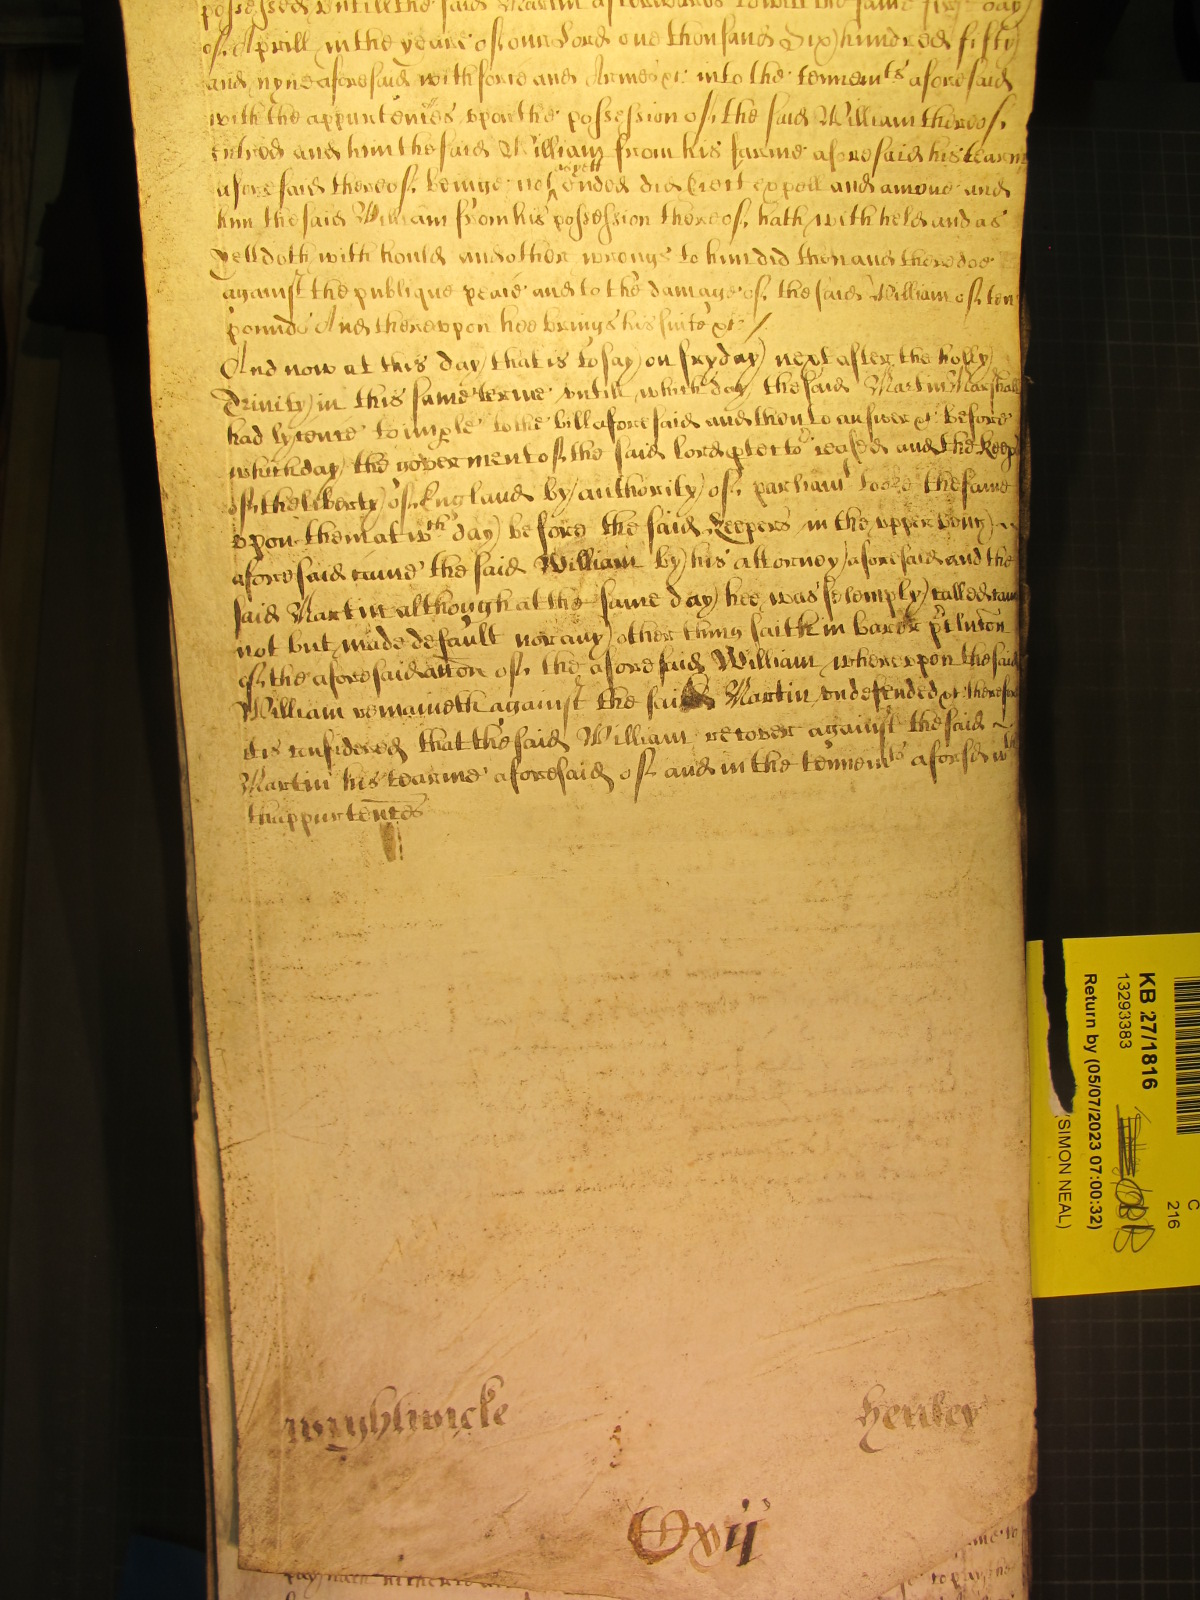 possessed untill the said Martin afterwards to witt the same first day
of Aprill in the yeare of our Lord one thousand Six hundred fifty
and nyne aforesaid with force and Armes &c into the tennemts aforesaid
with the appurtences upon the possession of the said William thereof
entred and him the said William from his farme aforesaid his tearme
aforesaid thereof beinge not ended did eiect expell and amove and
him the said William from his possession thereof hath with held and as
yett doth with hould and other wrongs to him did then and there doe
against the publique peace and to the damage of the said William of ten
pounds And thereupon hee brings his suite &c /
And now at this day that is to say on fryday next after the holly
Trinity in this same terme untill which day the said Martin Marshall
had lycence to imple to the bill aforesaid and then to answer &c before
which day the goverment of the said lord ptector ceased and the Keeps
of the liberty of England by authority of parliamt tooke the same
upon them at wch day before the said Keepers in the upper bench
aforesaid came the said William by his attorney aforesaid and the
said Martin although at the same day hee was solemply called came
not but made default nor any other thing saith in barr or pclusion
of the aforesaid accon of the aforesaid William whereupon the said
William remaineth against the said Martin undefended &c therefore
it is considered that the said William recover against the said
Martin his tearme aforesaid of and in the tennemts aforesd wth
thappurtences
wightwicke
henley
Cxvij
KB 27/1816
13293383
Return by (05/07/2023 07:00:32)
(SIMON NEAL)
C
216